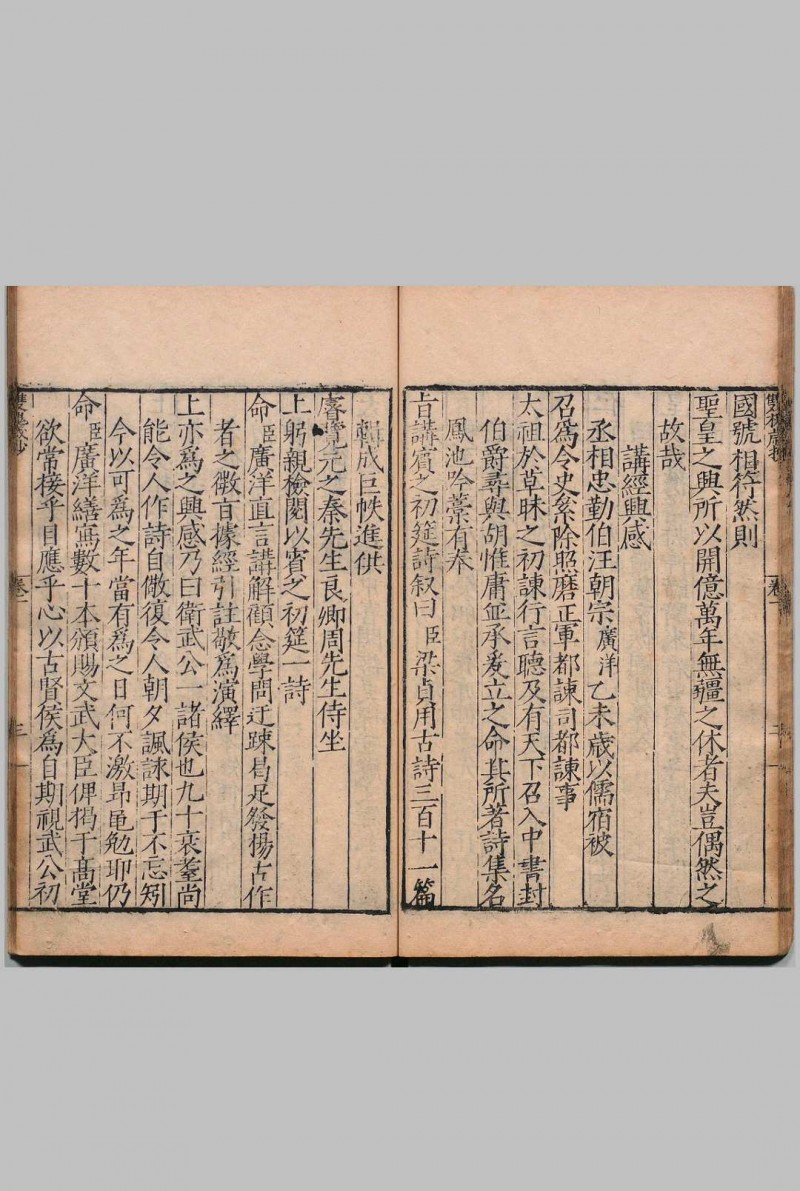 國號相符然則
聖皇之興所以開億萬年無疆之休者夫豈偶然之
故哉
講經興感
丞相忠勤伯汪朝宗廣洋乙未歳以儒宿被
召爲令史累除照磨正軍都諫司都諫事
太祖於草昧之初諫行言聽及有天下召入中書封
伯爵尋與胡惟庸並承爰立之命其所著詩集名
鳳池吟藁有奉
旨講賓之初筵詩叙曰臣梁貞用古詩三百十一篇
輯成巨帙進供
睿覽元之秦先生良卿周先生侍坐
上躬親檢閱以賓之初筵一詩
命臣廣洋直言講解顧念學問迂踈曷足發揚古作
者之徵旨據經引註敬爲演繹
上亦爲之興感乃曰衛武公一諸侯也九十衰耄尚
能令人作詩自儆復令人朝夕諷誎期于不忘矧
今以可爲之年當有爲之日何不激昂黽勉耶仍
命臣廣洋繕寫數十本頒賜文武大臣俾揭于髙堂
欲常接乎目應乎心以古賢侯爲自期視武公初
卷一